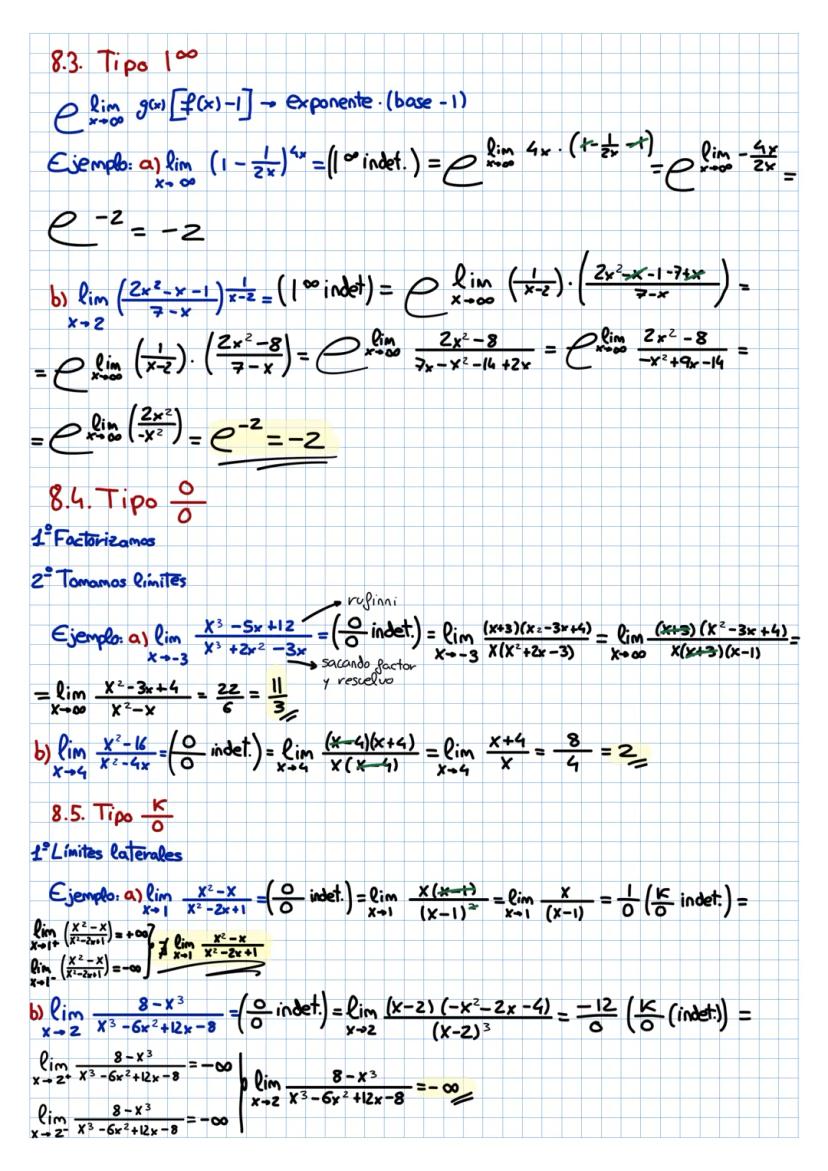 8.3. Tipo 1^∞
e^{lim x→∞ g(x) [f(x)-1]} → exponente · (base - 1)
Ejemplo: a) lim x→∞ (1 - 1/2x)^{4x} = (1^∞ indet.) = e^{lim x→∞ 4x · (1 - 1/2x - 1)} = e^{lim x→∞ - 4x/2x} =
e^{-2} = -2
b) lim x→2 ((2x² - x - 1)/(7 - x))^{1/(x-2)} = (1^∞ indet) = e^{lim x→∞ (1/(x-2)) · ((2x² - x - 1 - 7 + x)/(7-x))} =
= e^{lim x→∞ (1/(x-2)) · ((2x² - 8)/(7 - x))} = e^{lim x→∞ (2x² - 8)/(7x - x² - 14 + 2x)} = e^{lim x→∞ (2x² - 8)/(-x² + 9x - 14)} =
= e^{lim x→∞ (2x²/-x²)} = e^{-2} = -2
8.4. Tipo 0/0
1º Factorizamos
2º Tomamos límites
rufinni
Ejemplo: a) lim x→-3 (x³ - 5x + 12)/(x³ + 2x² - 3x) = (0/0 indet.) = lim x→-3 (x+3)(x² - 3x + 4)/x(x² + 2x - 3) = lim x→∞ (x+3)(x² - 3x + 4)/x(x+3)(x-1) =
sacando factor
y resuelvo
= lim x→∞ (x² - 3x + 4)/(x² - x) = 22/6 = 11/3
b) lim x→4 (x² - 16)/(x² - 4x) = (0/0 indet.) = lim x→4 (x-4)(x+4)/x(x-4) = lim x→4 (x+4)/x = 8/4 = 2
8.5. Tipo K/0
1º Límites laterales
Ejemplo: a) lim x→1 (x² - x)/(x² - 2x + 1) = (0/0 indet.) = lim x→1 x(x-1)/(x-1)² = lim x→1 x/(x-1) = 1/0 (K/0 indet.) =
lim x→1⁺ ((x² - x)/(x² - 2x + 1)) = +∞
lim x→1⁻ ((x² - x)/(x² - 2x + 1)) = -∞
∄ lim x→1 (x² - x)/(x² - 2x + 1)
b) lim x→2 (8 - x³)/(x³ - 6x² + 12x - 8) = (0/0 indet.) = lim x→2 (x-2)(-x² - 2x - 4)/(x-2)³ = -12/0 (K/0 (indet.)) =
lim x→2⁺ (8 - x³)/(x³ - 6x² + 12x - 8) = -∞
lim x→2⁻ (8 - x³)/(x³ - 6x² + 12x - 8) = -∞
lim x→2 (8 - x³)/(x³ - 6x² + 12x - 8) = -∞